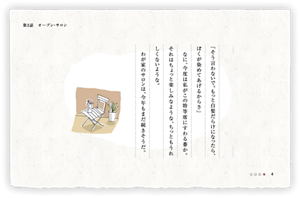 第2話　オープン・サロン
「そう言わないで。もっと白髪だらけになったら、
ぼくが染めてあげるからさ」
なに、今度は私がこの特等席にすわる番か。
それはちょっと楽しみなような、ちっともうれ
しくないような。
わが家のサロンは、今年もまだ続きそうだ。
4